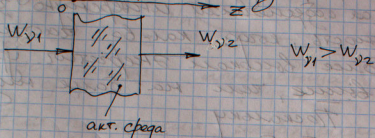 0 z
Wν1 Wν2 Wν1 > Wν2
акт. среда